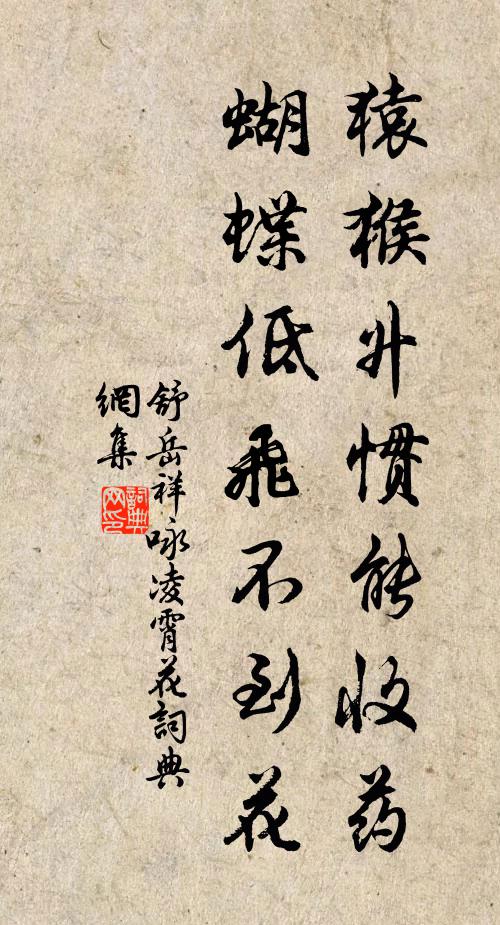 猿猴升惯能收药
蝴蝶低飞不到花
舒岳祥咏凌霄花詞典
網集
詞典
网印